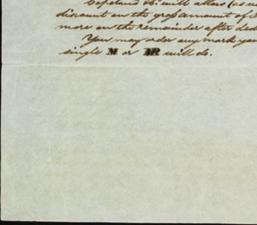 Copeland &c. will allow (as u
discount on the gross amount of i
more on the remainder after dedu
You may order any mark you
single M or IR will do.